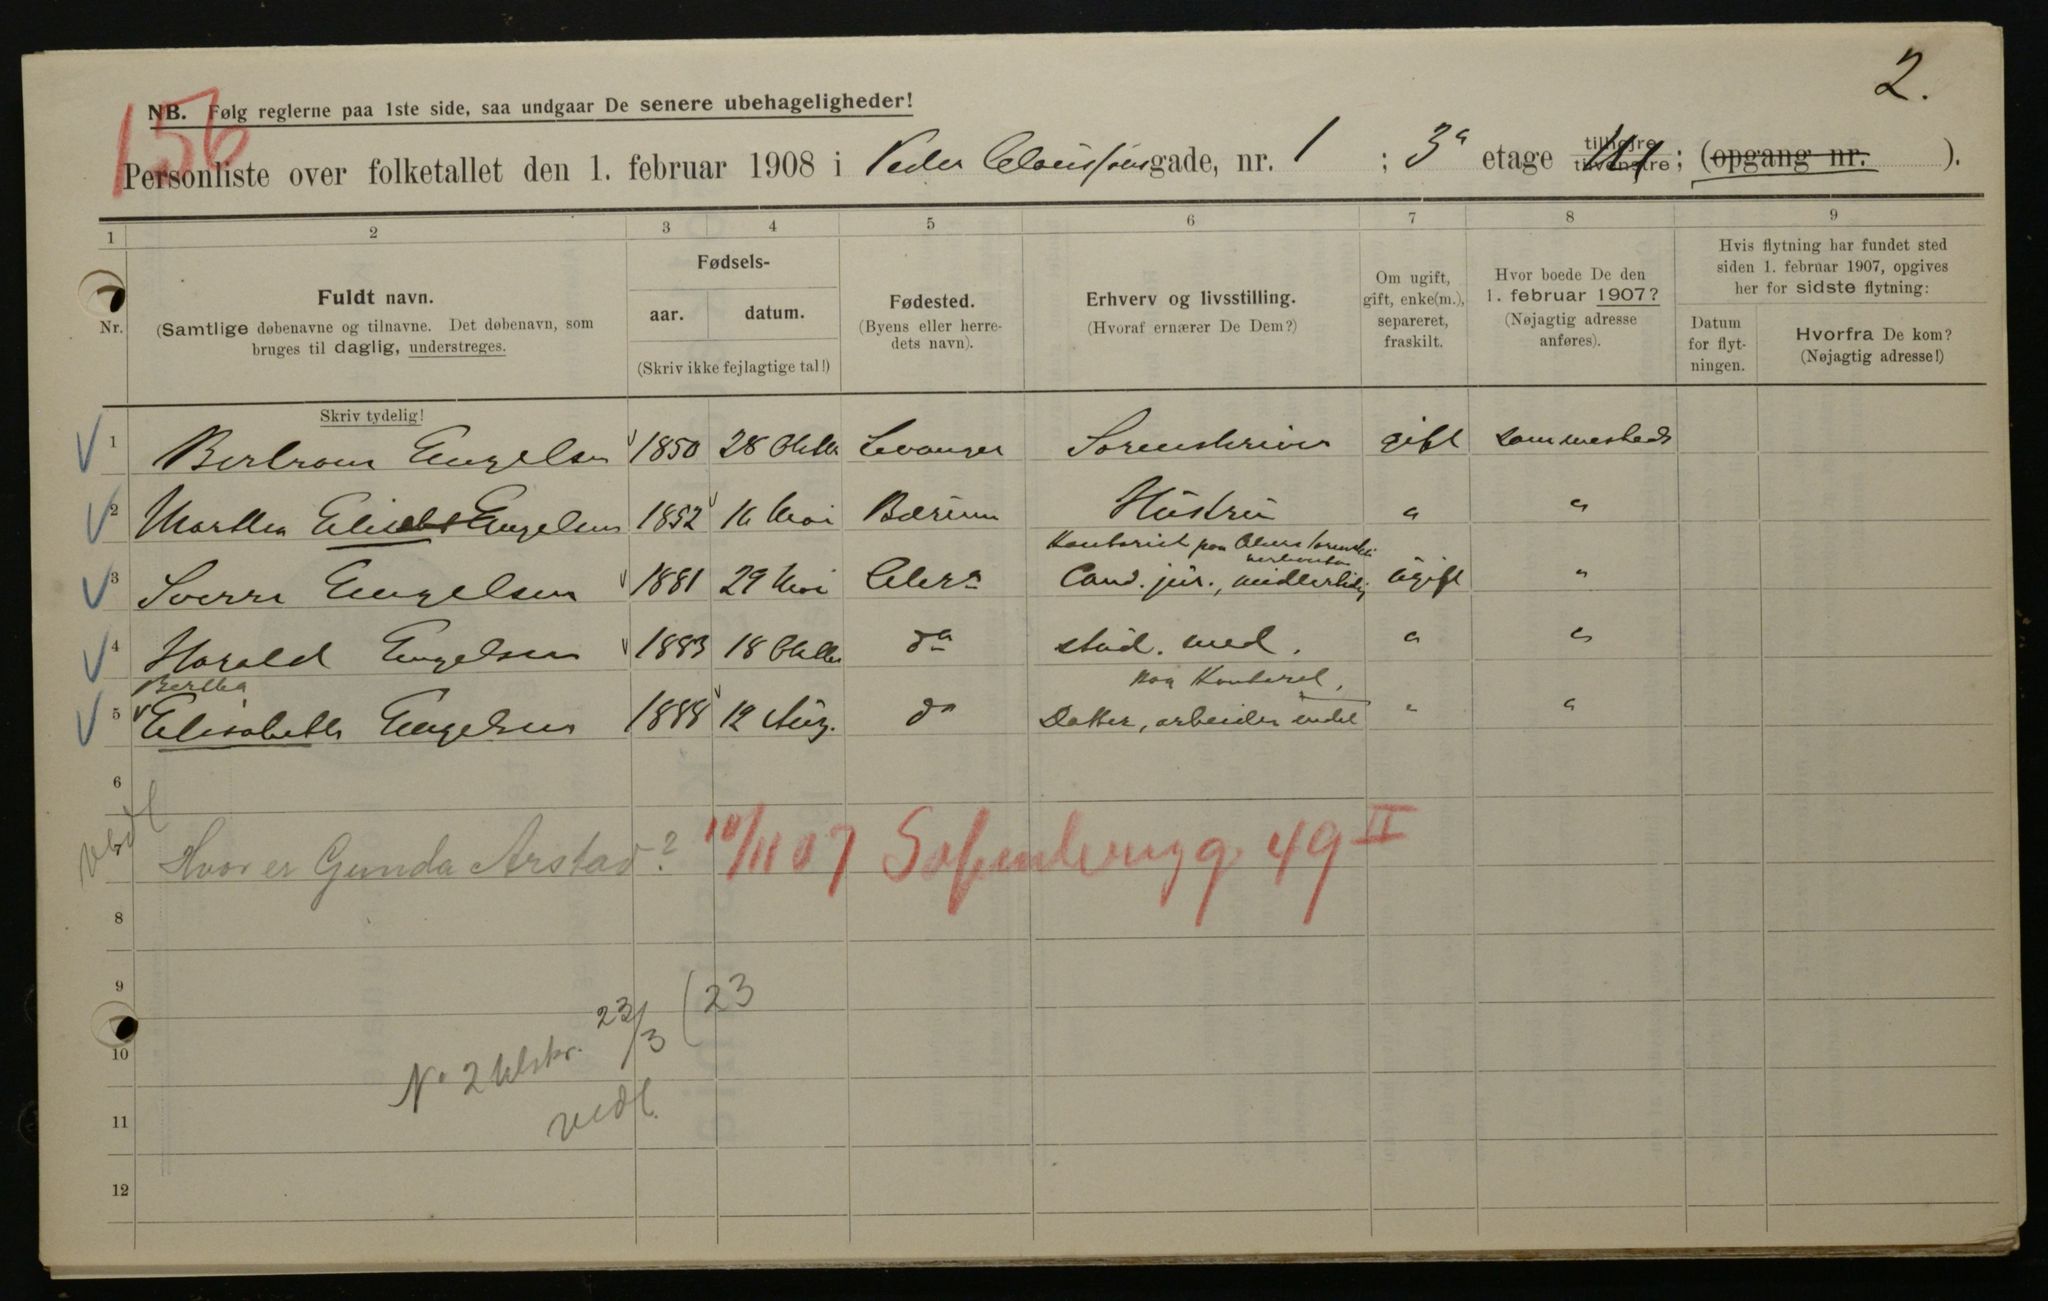 2.
156
NB. Følg reglerne paa 1ste side, saa undgaar De senere ubehageligheder!
Personliste over folketallet den 1. februar 1908 i Peder Claussønsgade, nr. 1 ; 3a etage tilhøjre tilvenstre ; (opgang nr. ).
1 2 3 4 5 6 7 8 9
Nr.
Fuldt navn.
(Samtlige døbenavne og tilnavne. Det døbenavn, som
bruges til daglig, understreges.
Skriv tydelig!
Fødsels-
aar. datum.
(Skriv ikke fejlagtige tal!)
Fødested.
(Byens eller herre-
dets navn).
Erhverv og livsstilling.
(Hvoraf ernærer De Dem?)
Om ugift,
gift, enke(m.),
separeret,
fraskilt.
Hvor boede De den
1. februar 1907?
(Nøjagtig adresse
anføres).
Hvis flytning har fundet sted
siden 1. februar 1907, opgives
her for sidste flytning:
Datum
for flyt-
ningen.
Hvorfra De kom?
(Nøjagtig adresse!)
1 Bertram Engelsen 1850 28 Oktbr Levanger Sorenskriver gift sammesteds
2 Martha Engelsen 1852 16 Mai Bærum Hustru " "
Kontorist paa Akers
3 Sverre Engelsen 1881 29 Mai Aker Cand. jur., midlertidig ugift "
4 Harald Engelsen 1883 18 Oktbr do stud. med. " "
Bertha
paa Kontoret,
5 Elisabeth Engelsen 1888 12 Aug. do Datter, arbeider endel " "
6
vedl
7 Hvor er Gunda Arstad? 10/11 07 Sofienberggt 49 II
8
9
23/3 (23
10
No 2
vedl.
11
12